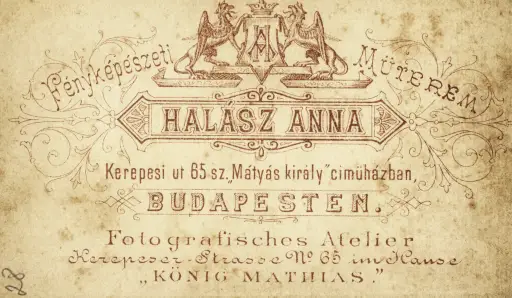 Fényképészeti Műterem
HA
HALÁSZ ANNA
Kerepesi ut 65 sz. „Mátyás király" cimüházban,
BUDAPESTEN.
Fotografisches Atelier
Kerepeser-Strasse No 65 im Hause
„KÖNIG MATHIAS."
28